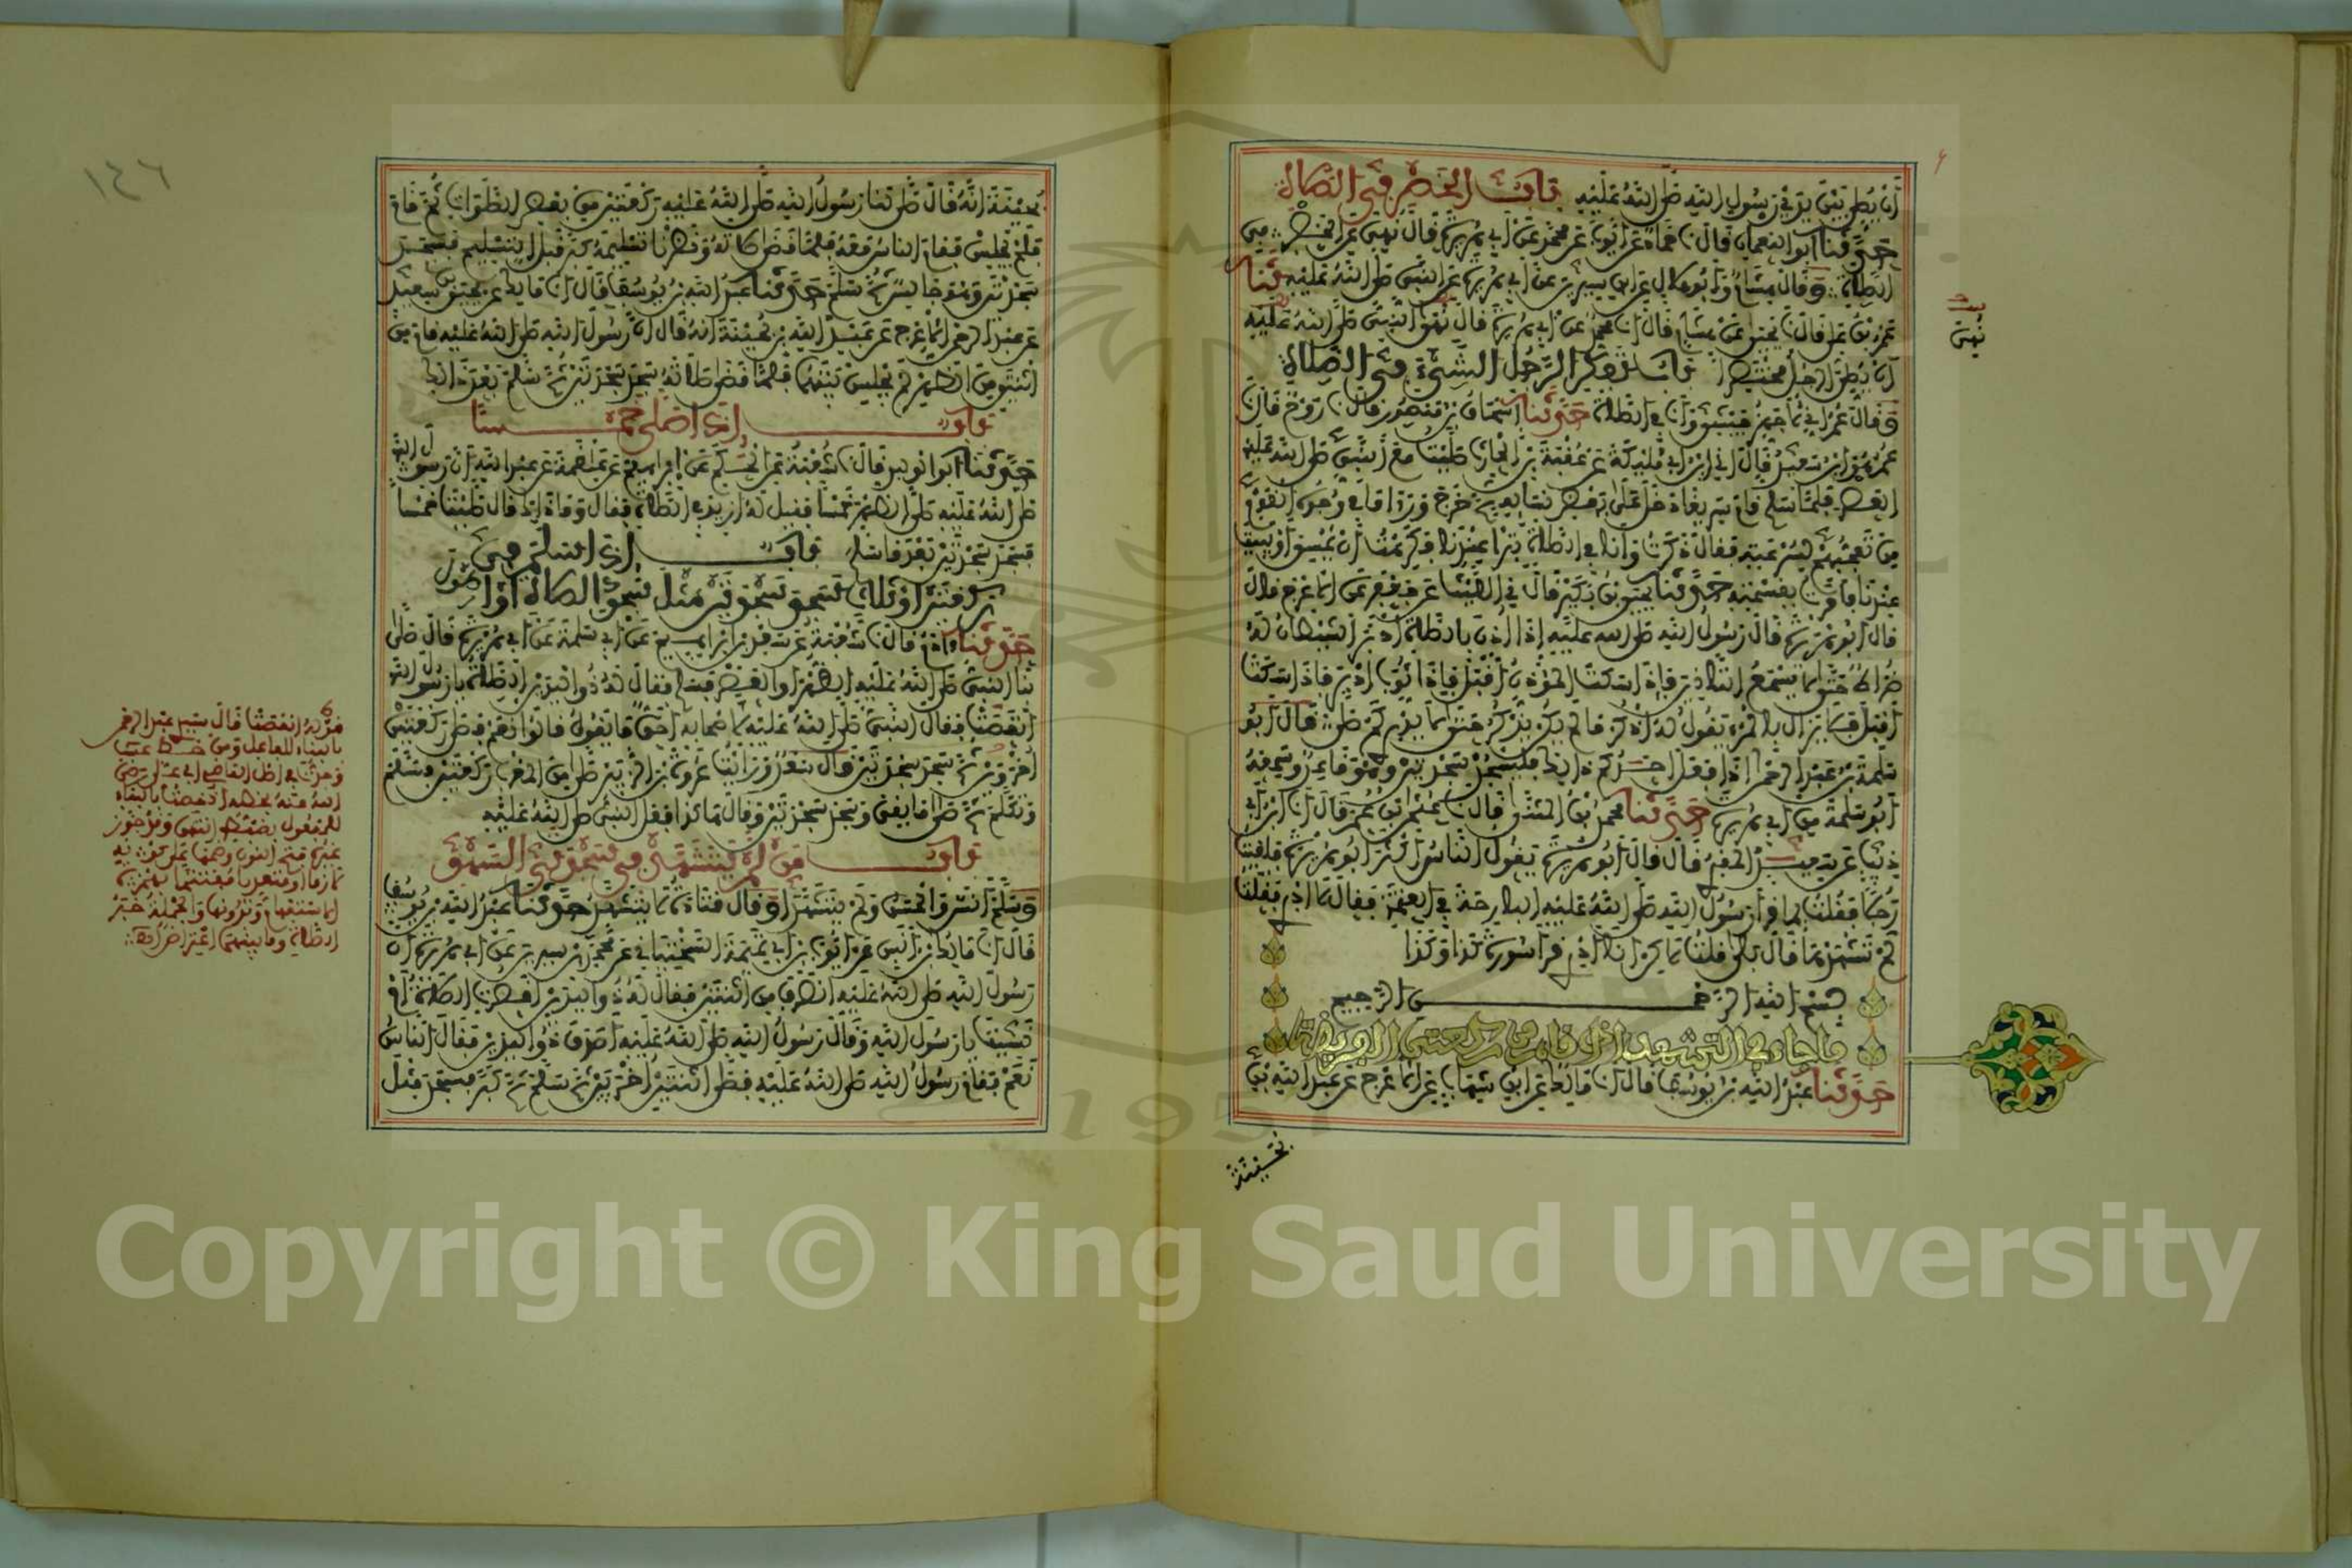 أن يصلي بين يدي رسول الله صلى الله عليه باب الخصر في الصلاة
حدثنا أبو النعمان قال نا حماد عن أيوب عن محمد عن أبي هريرة قال نهي عن الخصر في
الصلاة وقال هشام وأبو هلال عن ابن سيرين عن أبي هريرة عن النبي صلى الله عليه حدثنا
عمرو بن علي قال نا يحيى عن هشام قال نا محمد عن أبي هريرة قال نهى النبي صلى الله عليه
أن يصلي الرجل مختصرا باب تفكر الرجل الشيء في الصلاة
وقال عمر إني لأجهز جيشي وأنا في الصلاة حدثنا إسحاق بن منصور قال نا روح قال نا
عمر هو ابن سعيد قال أخبرني ابن أبي مليكة عن عقبة بن الحارث صليت مع النبي صلى الله عليه
العصر فلما سلم قام سريعا دخل على بعض نسائه ثم خرج ورأى ما في وجوه القوم
من تعجبهم لسرعته فقال ذكرت وأنا في الصلاة تبرا عندنا فكرهت أن يمسي أو يبيت
عندنا فأمرت بقسمته حدثنا يحيى بن بكير قال نا الليث عن جعفر عن الأعرج قال
قال أبو هريرة قال رسول الله صلى الله عليه إذا أذن بالصلاة أدبر الشيطان له
ضراط حتى لا يسمع التأذين فإذا سكت المؤذن أقبل فإذا ثوب أدبر فإذا سكت
أقبل فلا يزال بالمرء يقول له اذكر ما لم يكن يذكر حتى لا يدري كم صلى قال أبو
سلمة بن عبد الرحمن إذا فعل أحدكم ذلك فليسجد سجدتين وهو قاعد وسمعه
أبو سلمة من أبي هريرة حدثنا محمد بن المثنى قال نا عثمان بن عمر قال نا ابن أبي
ذئب عن سعيد المقبري قال قال أبو هريرة يقول الناس أكثر أبو هريرة فلقيت
رجلا فقلت بم قرأ رسول الله صلى الله عليه البارحة في العتمة فقال لا أدري فقلت
لم تشهدها قال بلى قلت لكن أنا أدري قرأ سورة كذا وكذا
بسم الله الرحمن الرحيم
ما جاء في التشهد إذا قام من ركعتي الفريضة
حدثنا عبد الله بن يوسف قال نا مالك عن ابن شهاب عن الأعرج عن عبد الله بن
بحينة
نهى
١٤٦
بحينة أنه قال صلى لنا رسول الله صلى الله عليه ركعتين من بعض الصلوات ثم قام
فلم يجلس فقام الناس معه فلما قضى صلاته ونظرنا تسليمه كبر قبل التسليم فسجد
سجدتين وهو جالس ثم سلم حدثنا عبد الله بن يوسف قال نا مالك عن يحيى بن سعيد
عن عبد الرحمن الأعرج عن عبد الله بن بحينة أنه قال إن رسول الله صلى الله عليه قام من
اثنتين من الظهر لم يجلس بينهما فلما قضى صلاته سجد سجدتين ثم سلم بعد ذلك
باب إذا صلى خمسا
حدثنا أبو الوليد قال نا شعبة عن الحكم عن إبراهيم عن علقمة عن عبد الله أن رسول الله
صلى الله عليه صلى الظهر خمسا فقيل له أزيد في الصلاة فقال وما ذاك قال صليت خمسا
فسجد سجدتين بعد ما سلم باب إذا سلم في
ركعتين أو ثلاث فسجد سجدتين مثل سجود الصلاة أو أطول
حدثنا آدم قال نا شعبة عن سعد بن إبراهيم عن أبي سلمة عن أبي هريرة قال صلى
بنا النبي صلى الله عليه الظهر أو العصر فسلم فقال له ذو اليدين الصلاة يا رسول الله
أنقصت فقال النبي صلى الله عليه لأصحابه أحق ما يقول قالوا نعم فصلى ركعتين
أخريين ثم سجد سجدتين قال سعد ورأيت عروة بن الزبير صلى من المغرب ركعتين فسلم
وتكلم ثم صلى ما بقي وسجد سجدتين وقال هكذا فعل النبي صلى الله عليه
باب من لم يتشهد في سجدتي السهو
وسلم أنس والحسن ولم يتشهدا وقال قتادة لا يتشهد حدثنا عبد الله بن يوسف
قال نا مالك بن أنس عن أيوب بن أبي تميمة السختياني عن محمد بن سيرين عن أبي هريرة أن
رسول الله صلى الله عليه انصرف من اثنتين فقال له ذو اليدين أقصرت الصلاة أم
نسيت يا رسول الله وقال رسول الله صلى الله عليه أصدق ذو اليدين فقال الناس
نعم فقام رسول الله صلى الله عليه فصلى اثنتين أخريين ثم سلم ثم كبر فسجد مثل
Copyright © King Saud University
1957